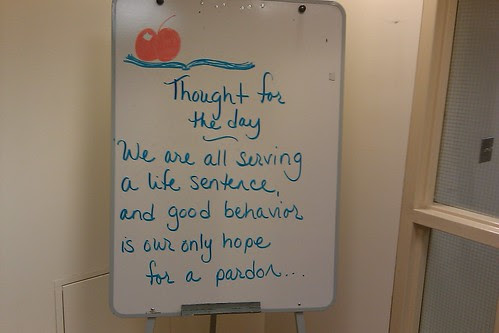 Thought for
the day
We are all serving
a life sentence,
and good behavior
is our only hope
for a pardon...